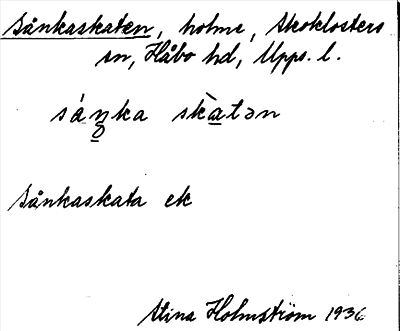 Sånkaskaten, holme, Skoklosters
sn, Håbo hd, Upps. l.
sáŋka skàtən
Sånkaskata ek
Stina Holmström 1936